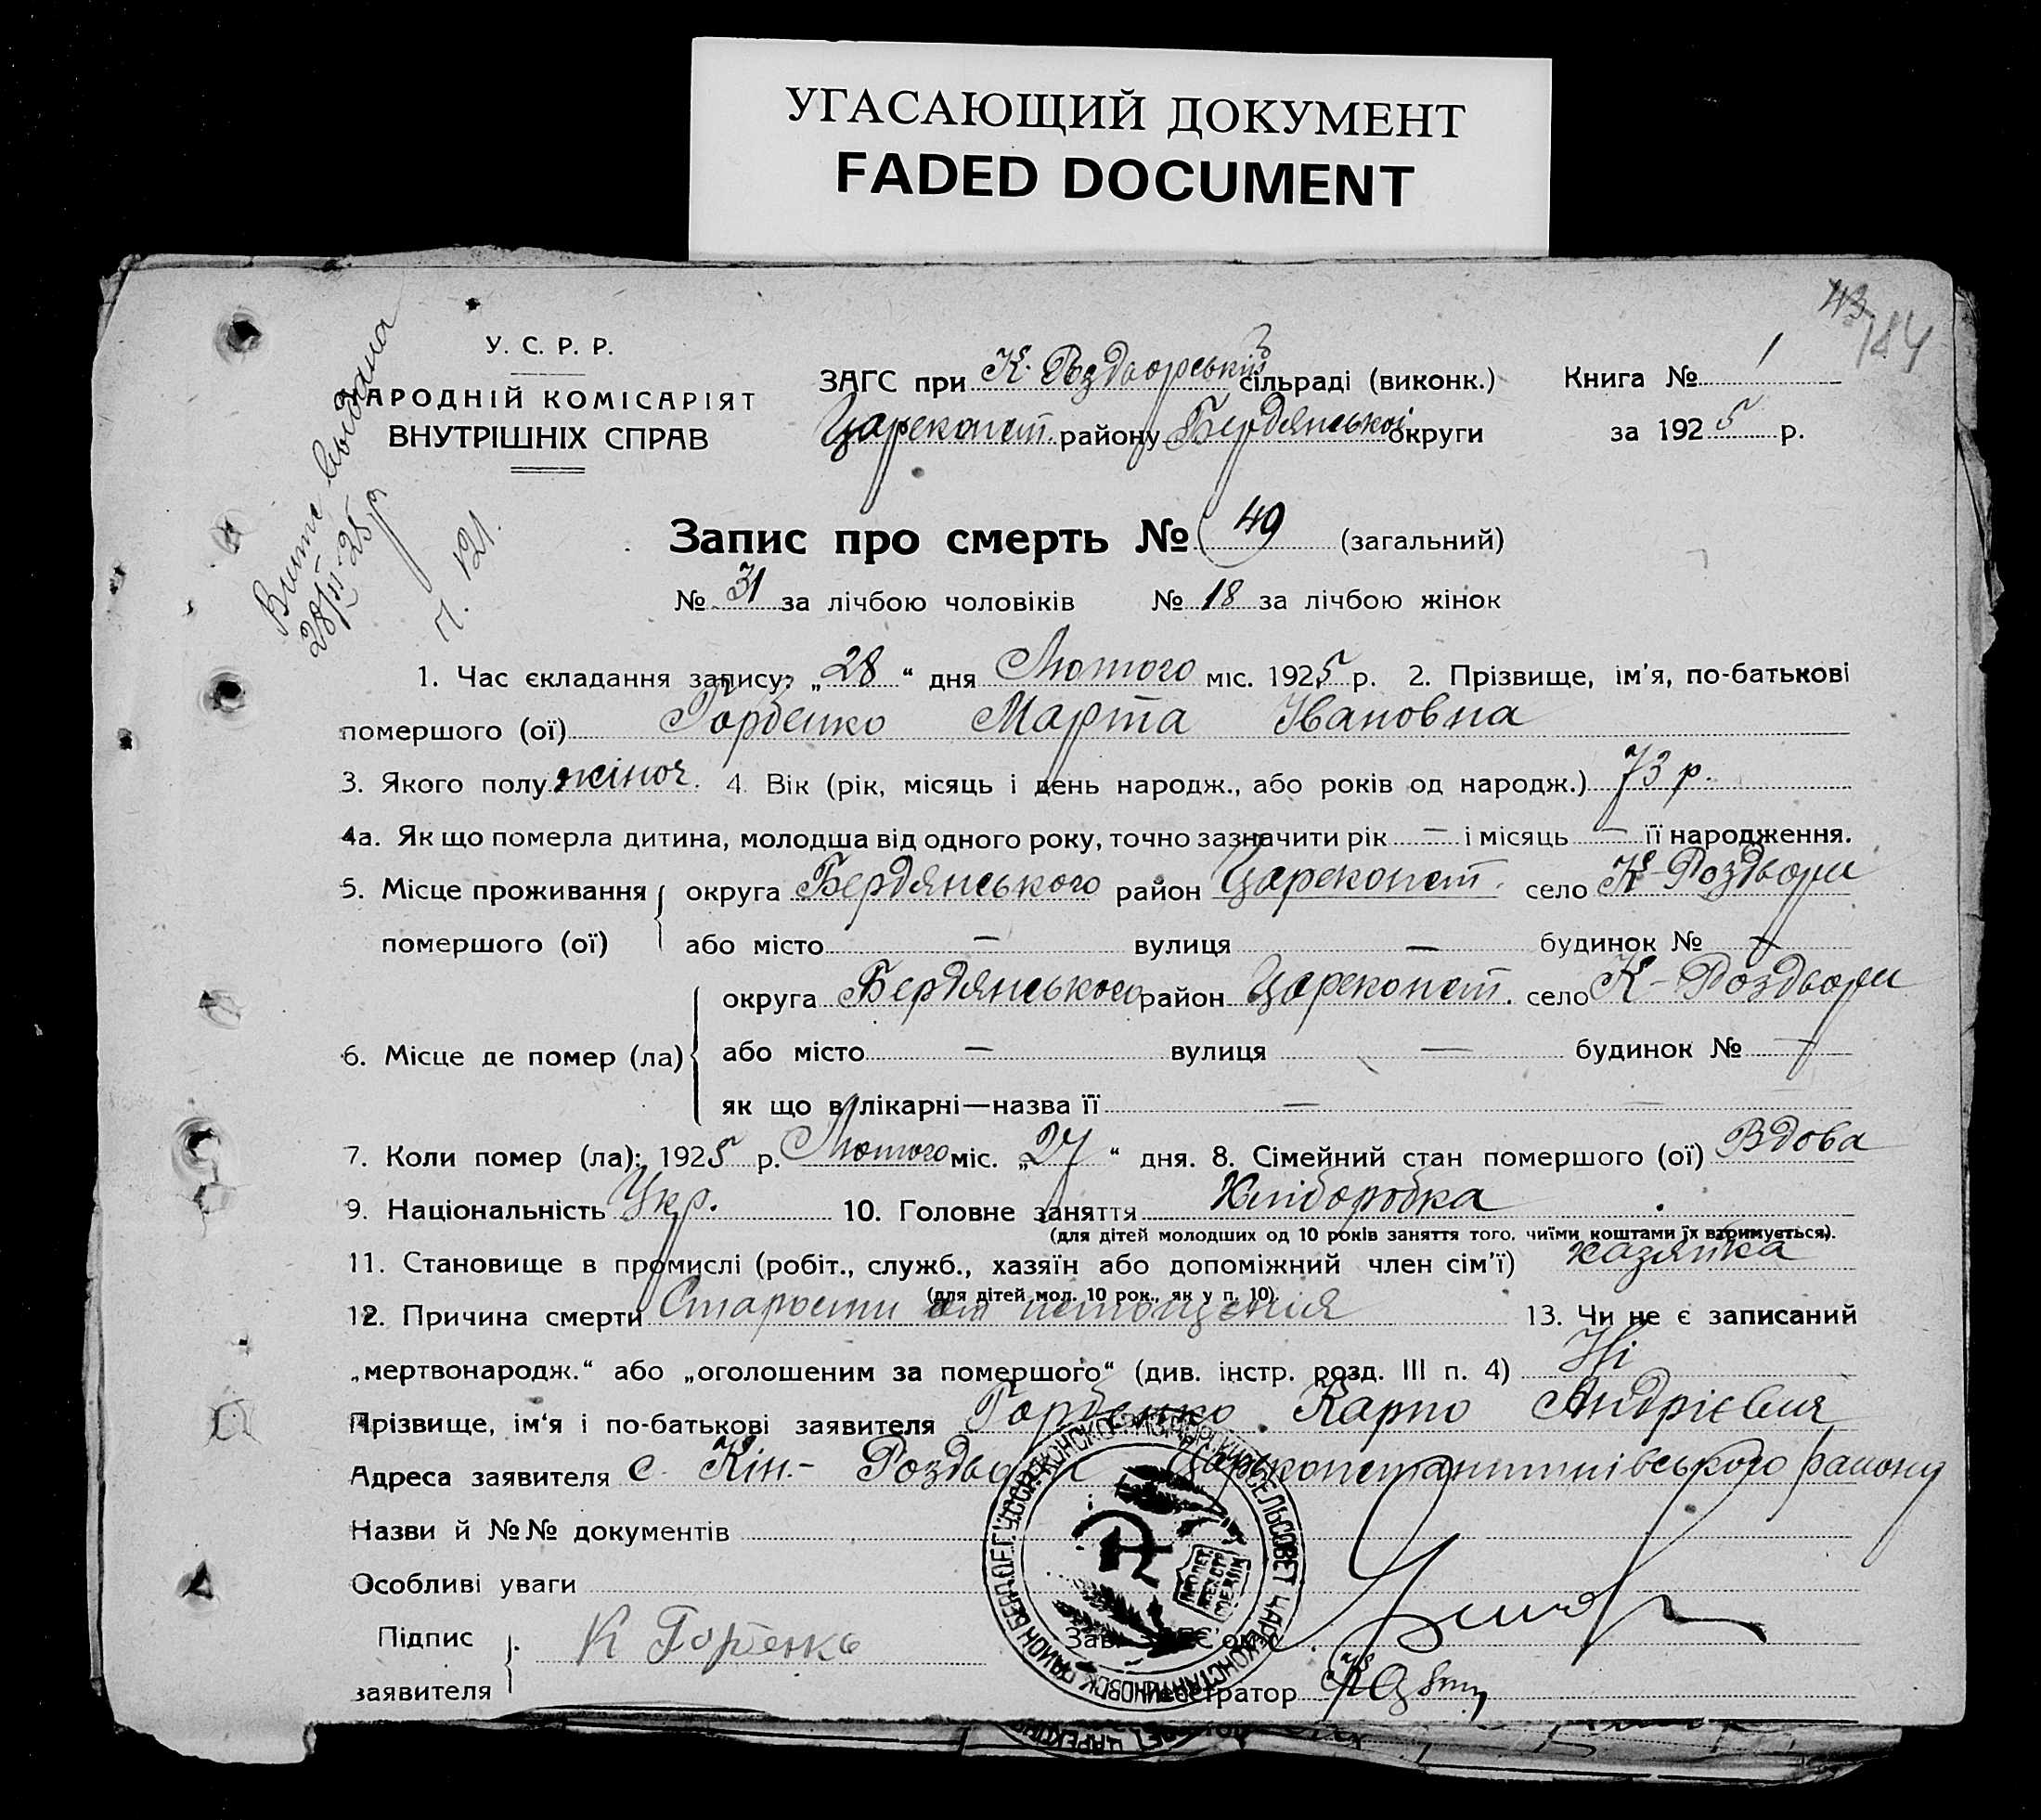 УГАСАЮЩИЙ ДОКУМЕНТ
FADED DOCUMENT
43
184
У. С. Р. Р.
НАРОДНІЙ КОМІСАРІЯТ
ВНУТРІШНІХ СПРАВ
ЗАГС при К. Роздворській сільраді (виконк.)
Книга № 1
Цареконст. району Бердянської округи
за 1925 р.
видана
28/II-25 р
ч. 121.
Запис про смерть № 49 (загальний)
№ 31 за лічбою чоловіків № 18 за лічбою жінок
1. Час складання запису: „28“ дня Лютого міс. 1925 р. 2. Прізвище, ім'я, по-батькові
помершого (ої) Горбенко Марта Івановна
3. Якого полу жіноч. 4. Вік (рік, місяць і день народж., або років од народж.) 73 р.
4а. Як що померла дитина, молодша від одного року, точно зазначити рік — і місяць — її народження.
5. Місце проживання округа Бердянського район Цареконст. село К-Роздори
помершого (ої) або місто — вулиця — будинок № —
округа Бердянського район Цареконст. село К-Роздори
6. Місце де помер (ла) або місто — вулиця — будинок № —
як що в лікарні—назва її — —
7. Коли помер (ла): 1925 р. Лютого міс. „27“ дня. 8. Сімейний стан помершого (ої) Вдова
9. Національність Укр. 10. Головне заняття Хліборобка
(для дітей молодших од 10 років заняття того, чиїми коштами їх втримується).
11. Становище в промислі (робіт., служб., хазяїн або допоміжний член сім'ї) хазяйка
(для дітей мол. 10 рок., як у п. 10).
12. Причина смерти Старости от истощенія 13. Чи не є записаний
„мертвонародж.“ або „оголошеним за помершого“ (див. інстр. розд. III п. 4) Ні
Прізвище, ім'я і по-батькові заявителя Горбенко Карпо Андрієвич
Адреса заявителя с. Кін.- Роздори Царьконстантинівського району
Назви й №№ документів
Особливі уваги
Підпис К Горбенко
заявителя
Реєстратор